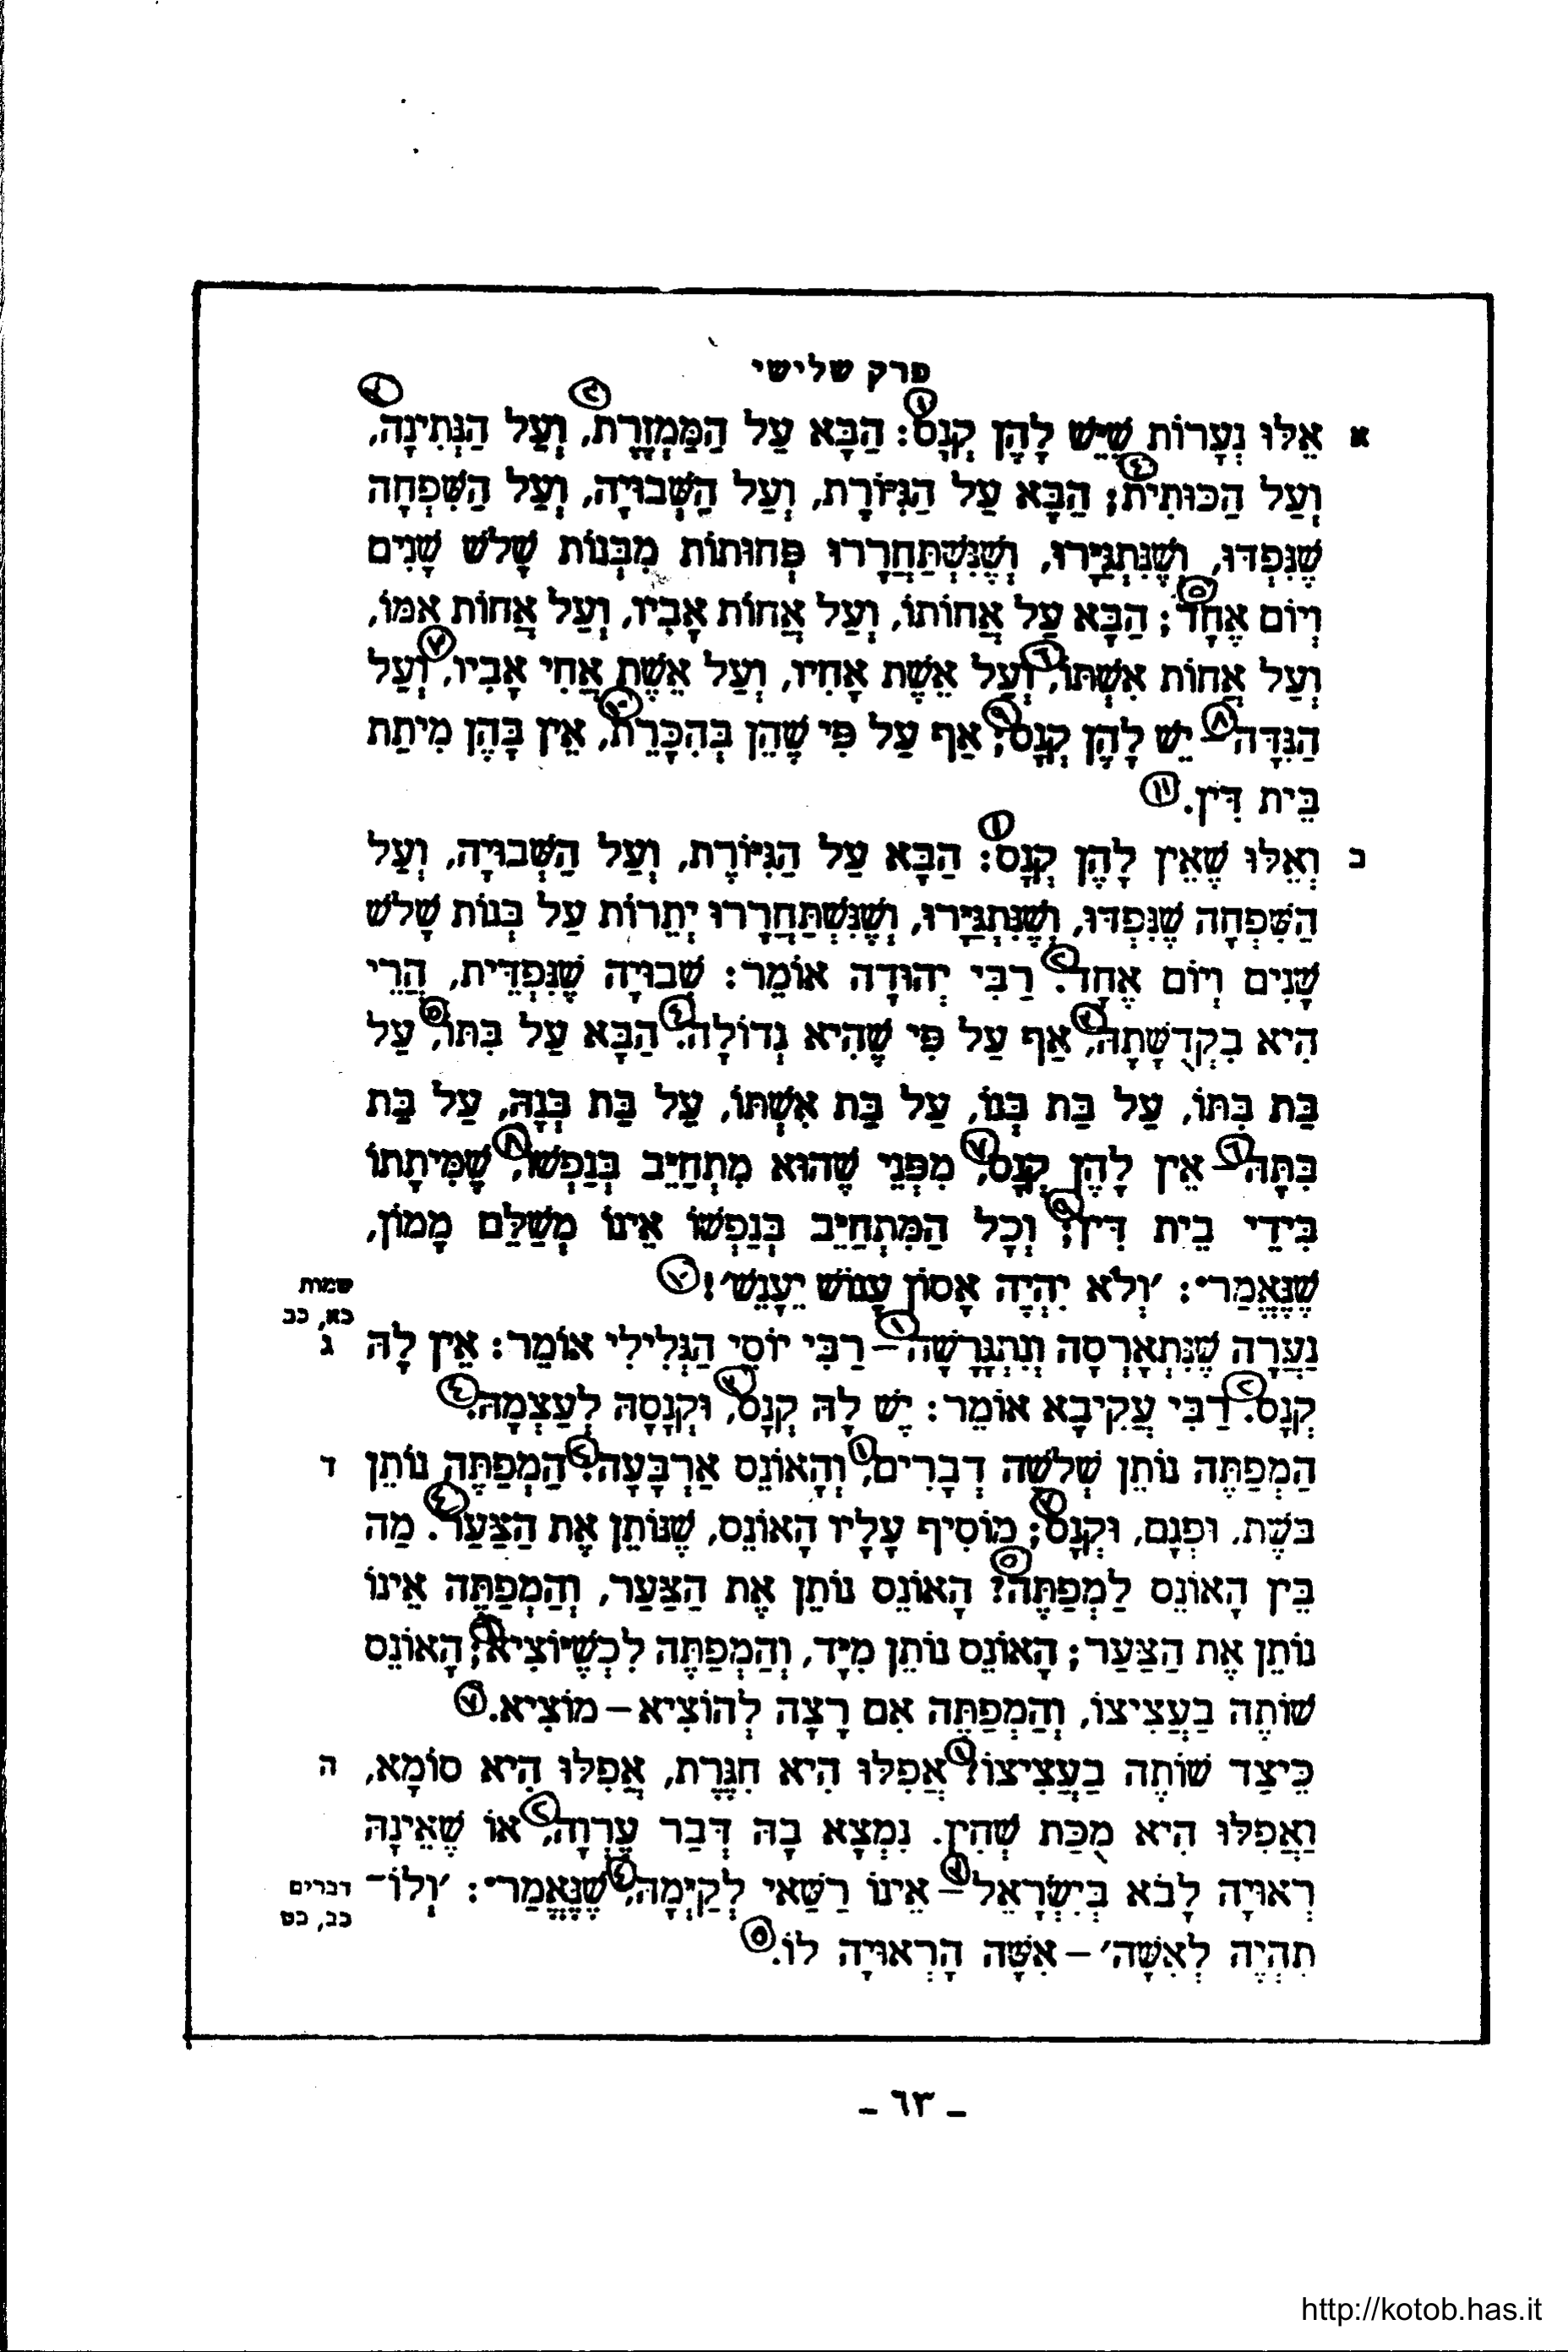 פרק שלישי
א אֵלּוּ נְעָרוֹת שֶׁיֵּשׁ לָהֶן קְנָס①: הַבָּא עַל הַמַּמְזֶרֶת, (٢) וְעַל הַנְּתִינָה, (٣)
וְעַל הַכּוּתִית; (٤) הַבָּא עַל הַגִּיּוֹרֶת, וְעַל הַשְּׁבוּיָה, וְעַל הַשִּׁפְחָה
שֶׁנִּפְדּוּ, וְשֶׁנִּתְגַּיָּרוּ, וְשֶׁנִּשְׁתַּחְרָרוּ פְּחוּתוֹת מִבְּנוֹת שָׁלֹשׁ שָׁנִים
וְיוֹם אֶחָד (٥); הַבָּא עַל אֲחוֹתוֹ, וְעַל אֲחוֹת אָבִיו, וְעַל אֲחוֹת אִמּוֹ,
וְעַל אֲחוֹת אִשְׁתּוֹ, (٦) וְעַל אֵשֶׁת אָחִיו, וְעַל אֵשֶׁת אֲחִי אָבִיו, (٧) וְעַל
הַנִּדָּה (٨) – יֵשׁ לָהֶן קְנָס; (٩) אַף עַל פִּי שֶׁהֵן בְּהִכָּרֵת, (١٠) אֵין בָּהֶן מִיתַת
בֵּית דִּין. (١١)
ב וְאֵלּוּ שֶׁאֵין לָהֶן קְנָס (١): הַבָּא עַל הַגִּיּוֹרֶת, וְעַל הַשְּׁבוּיָה, וְעַל
הַשִּׁפְחָה שֶׁנִּפְדּוּ, וְשֶׁנִּתְגַּיָּרוּ, וְשֶׁנִּשְׁתַּחְרָרוּ יְתֵרוֹת עַל בְּנוֹת שָׁלֹשׁ
שָׁנִים וְיוֹם אֶחָד. (٢) רַבִּי יְהוּדָה אוֹמֵר: שְׁבוּיָה שֶׁנִּפְדֵּית, הֲרֵי
הִיא בִקְדֻשָּׁתָהּ, (٣) אַף עַל פִּי שֶׁהִיא גְדוֹלָה. (٤) הַבָּא עַל בִּתּוֹ, (٥) עַל
בַּת בִּתּוֹ, עַל בַּת בְּנוֹ, עַל בַּת אִשְׁתּוֹ, עַל בַּת בְּנָהּ, עַל בַּת
בִּתָּהּ (٦) – אֵין לָהֶן קְנָס, (٧) מִפְּנֵי שֶׁהוּא מִתְחַיֵּב בְּנַפְשׁוֹ, (٨) שֶׁמִּיתָתוֹ
בִּידֵי בֵית דִּין; (٩) וְכָל הַמִּתְחַיֵּב בְּנַפְשׁוֹ אֵינוֹ מְשַׁלֵּם מָמוֹן,
שֶׁנֶּאֱמַר•: ׳וְלֹא יִהְיֶה אָסוֹן עָנוֹשׁ יֵעָנֵשׁ׳! (١٠)
שמות
כא, כב
ג נַעֲרָה שֶׁנִּתְאָרְסָה וְנִתְגָּרְשָׁה (١) – רַבִּי יוֹסֵי הַגְּלִילִי אוֹמֵר: אֵין לָהּ
קְנָס. (٢) רַבִּי עֲקִיבָא אוֹמֵר: יֶשׁ לָהּ קְנָס, (٣) וּקְנָסָהּ לְעַצְמָהּ. (٤)
ד הַמְפַתֶּה נוֹתֵן שְׁלֹשָׁה דְבָרִים, (١) וְהָאוֹנֵס אַרְבָּעָה. (٢) הַמְפַתֶּה נוֹתֵן
בֹּשֶׁת, וּפְגָם, וּקְנָס; (٣) מוֹסִיף עָלָיו הָאוֹנֵס, שֶׁנּוֹתֵן אֶת הַצַּעַר. (٤) מַה
בֵּין הָאוֹנֵס לַמְפַתֶּה? (٥) הָאוֹנֵס נוֹתֵן אֶת הַצַּעַר, וְהַמְפַתֶּה אֵינוֹ
נוֹתֵן אֶת הַצַּעַר; הָאוֹנֵס נוֹתֵן מִיָּד, וְהַמְפַתֶּה לִכְשֶׁיּוֹצִיא; (٦) הָאוֹנֵס
שׁוֹתֶה בַעֲצִיצוֹ, וְהַמְפַתֶּה אִם רָצָה לְהוֹצִיא – מוֹצִיא. (٧)
ה כֵּיצַד שׁוֹתֶה בַעֲצִיצוֹ? (١) אֲפִלּוּ הִיא חִגֶּרֶת, אֲפִלּוּ הִיא סוֹמָא,
וַאֲפִלּוּ הִיא מֻכַּת שְׁחִין. נִמְצָא בָהּ דְּבַר עֶרְוָה, (٢) אוֹ שֶׁאֵינָהּ
רְאוּיָה לָבֹא בְּיִשְׂרָאֵל (٣) – אֵינוֹ רַשַּׁאי לְקַיְּמָהּ, (٤) שֶׁנֶּאֱמַר•: ׳וְלוֹ־
דברים
כב, כט
תִהְיֶה לְאִשָּׁה׳ – אִשָּׁה הָרְאוּיָה לוֹ. (٥)
– ٦٣ –
http://kotob.has.it